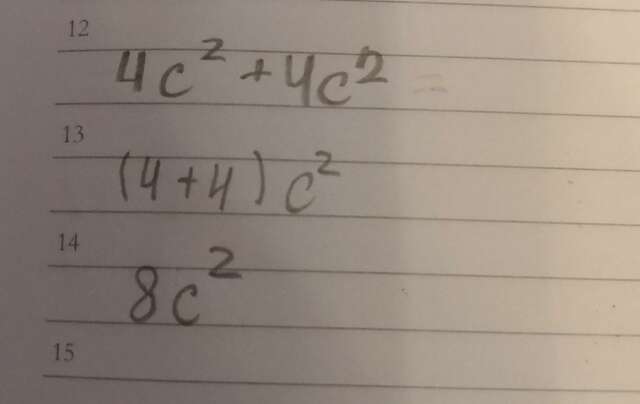 12
4c² + 4c² =
13
(4 + 4) c²
14
8c²
15